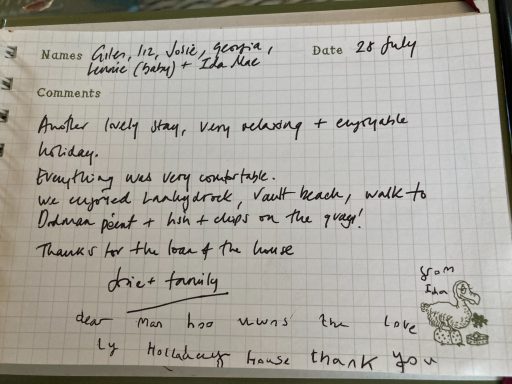 Names Giles, Liz, Josie, Georgia, Date 28 July
Lennie (baby) + Ida Mae
Comments
Another lovely stay, very relaxing + enjoyable
holiday.
Everything was very comfortable.
We enjoyed Lanhydrock, Vault beach, walk to
Dodman point + fish + chips on the quay!
Thanks for the loan of the house
+ family
from
Ida
dear man hoo uwns the love
ly Holladay house thank you